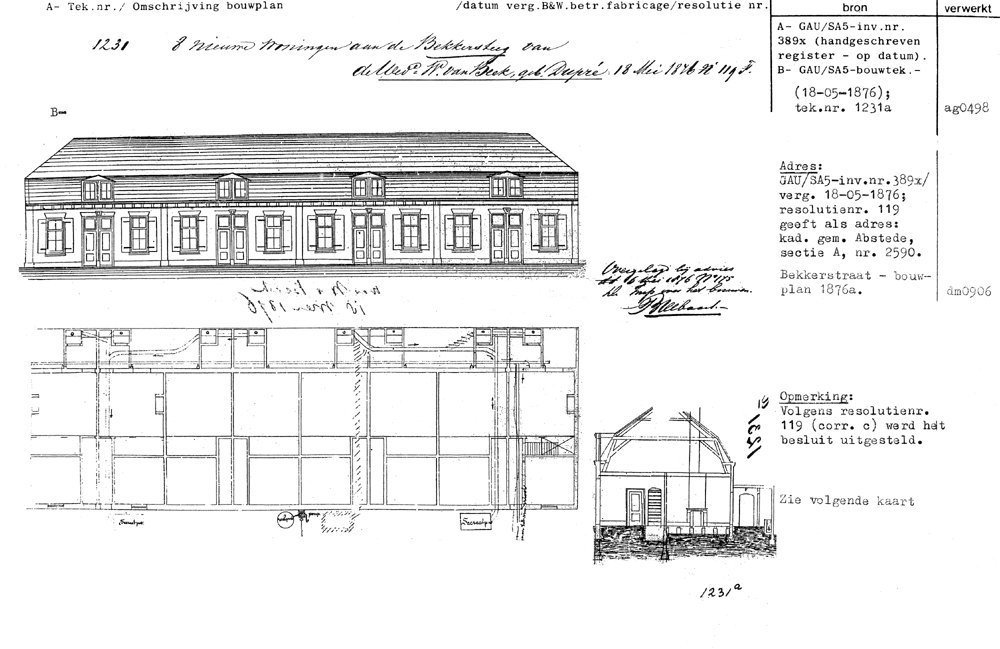 A- Tek.nr./ Omschrijving bouwplan /datum verg.B&W.betr.fabricage/resolutie nr.
bron
verwerkt
1231 8 nieuwe Woningen aan de Bekkersteeg van
de Wed.e W. van Beek, geb. Dupré. 18 Mei 1876 No 119 F.
A- GAU/SA5-inv.nr.
389x (handgeschreven
register - op datum).
B- GAU/SA5-bouwtek.-
(18-05-1876);
tek.nr. 1231a
ag0498
B-
Adres:
GAU/SA5-inv.nr.389x/
verg. 18-05-1876;
resolutienr. 119
geeft als adres:
kad. gem. Abstede,
sectie A, nr. 2590.
Bekkerstraat - bouw-
plan 1876a.
dm0906
Overgelegd bij advies
mei 1876
1876
Opmerking:
Volgens resolutienr.
119 (corr. c) werd het
besluit uitgesteld.
Zie volgende kaart
1231
Secreetput
pomp
Secreetput
1231a